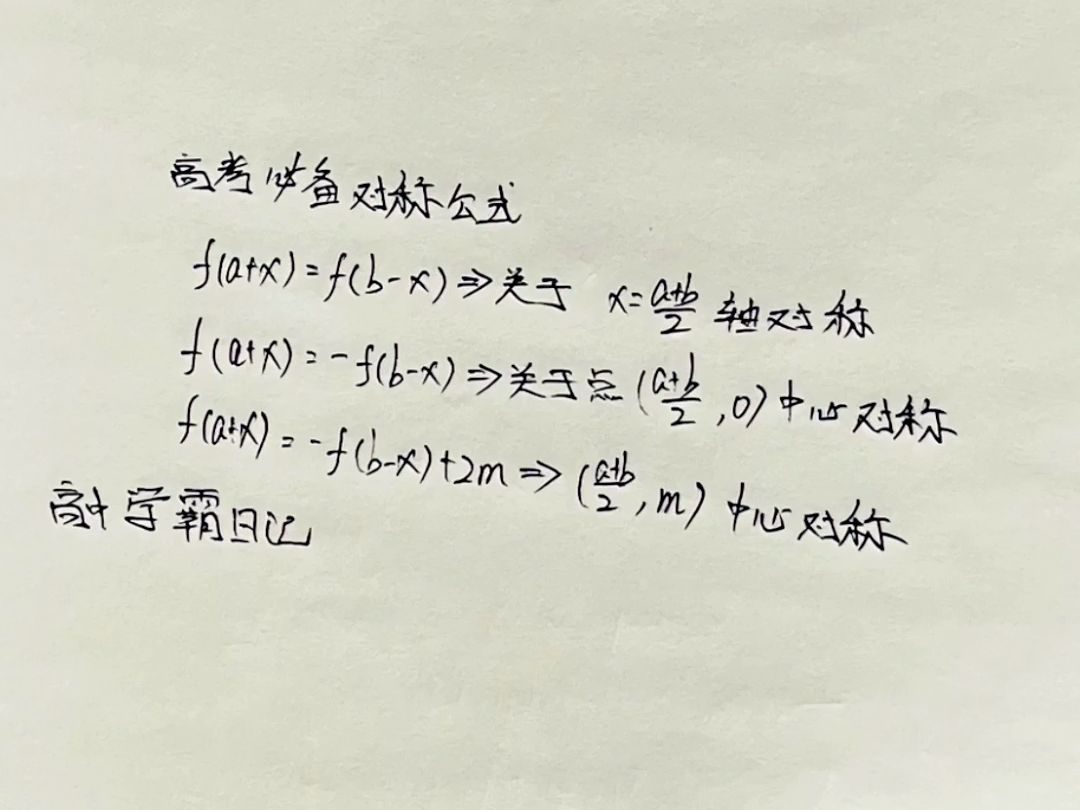 高考必备对称公式
f(a+x)=f(b-x)⇒关于 x=\frac{a+b}{2} 轴对称
f(a+x)=-f(b-x)⇒关于点(\frac{a+b}{2},0)中心对称
f(a+x)=-f(b-x)+2m⇒(\frac{a+b}{2},m)中心对称
高中学霸日记